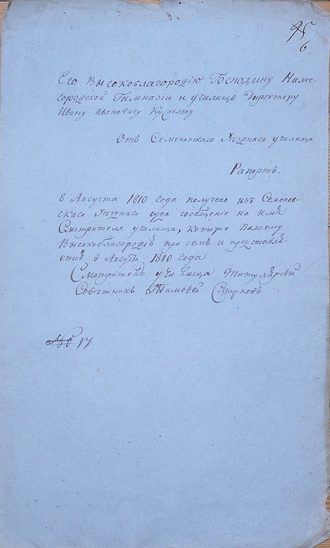 95
6.
Его Высокоблагородію Господину Ниже-
городской Гимназіи и училищъ Директору
Ивану Ивановичу
Отъ Семеновскаго Уѣзднаго училища
Рапортъ.
8 Августа 1810 года получено изъ Семенов-
скаго Уѣзднаго суда сообщеніе на имя
Смотрителя училища, которое Вашему
Высокоблагородію при семъ и представля-
ется. 8 Августа 1810 года
Смотритель училища Титулярный
Совѣтникъ Тимофей Смирновъ
17